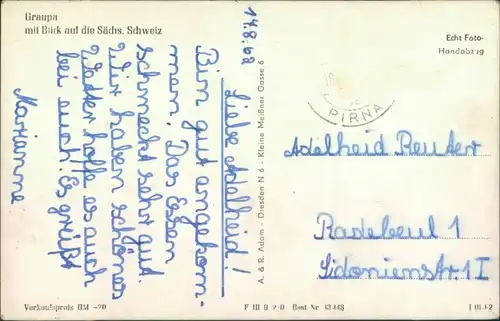 Graupa
mit Blick auf die Sächs. Schweiz
14.8.62
Liebe Adelheid!
Bin gut angekom-
men. Das Essen
schmeckt sehr gut.
Wir haben schönes
Wetter hoffe es auch
bei euch. Es grüßt
Marianne
A. & R. Adam - Dresden N 6 - Kleine Meißner Gasse 6
Echt Foto-
Handabzug
PIRNA
Adelheid Reuter
Radebeul 1
Sidonienstr. 1 I
Verkaufspreis DM -,20
Best Nr